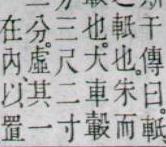 干傳曰。軝
軝也。朱而
也。大車轂
三尺二寸
分。虛其一
在內、以置